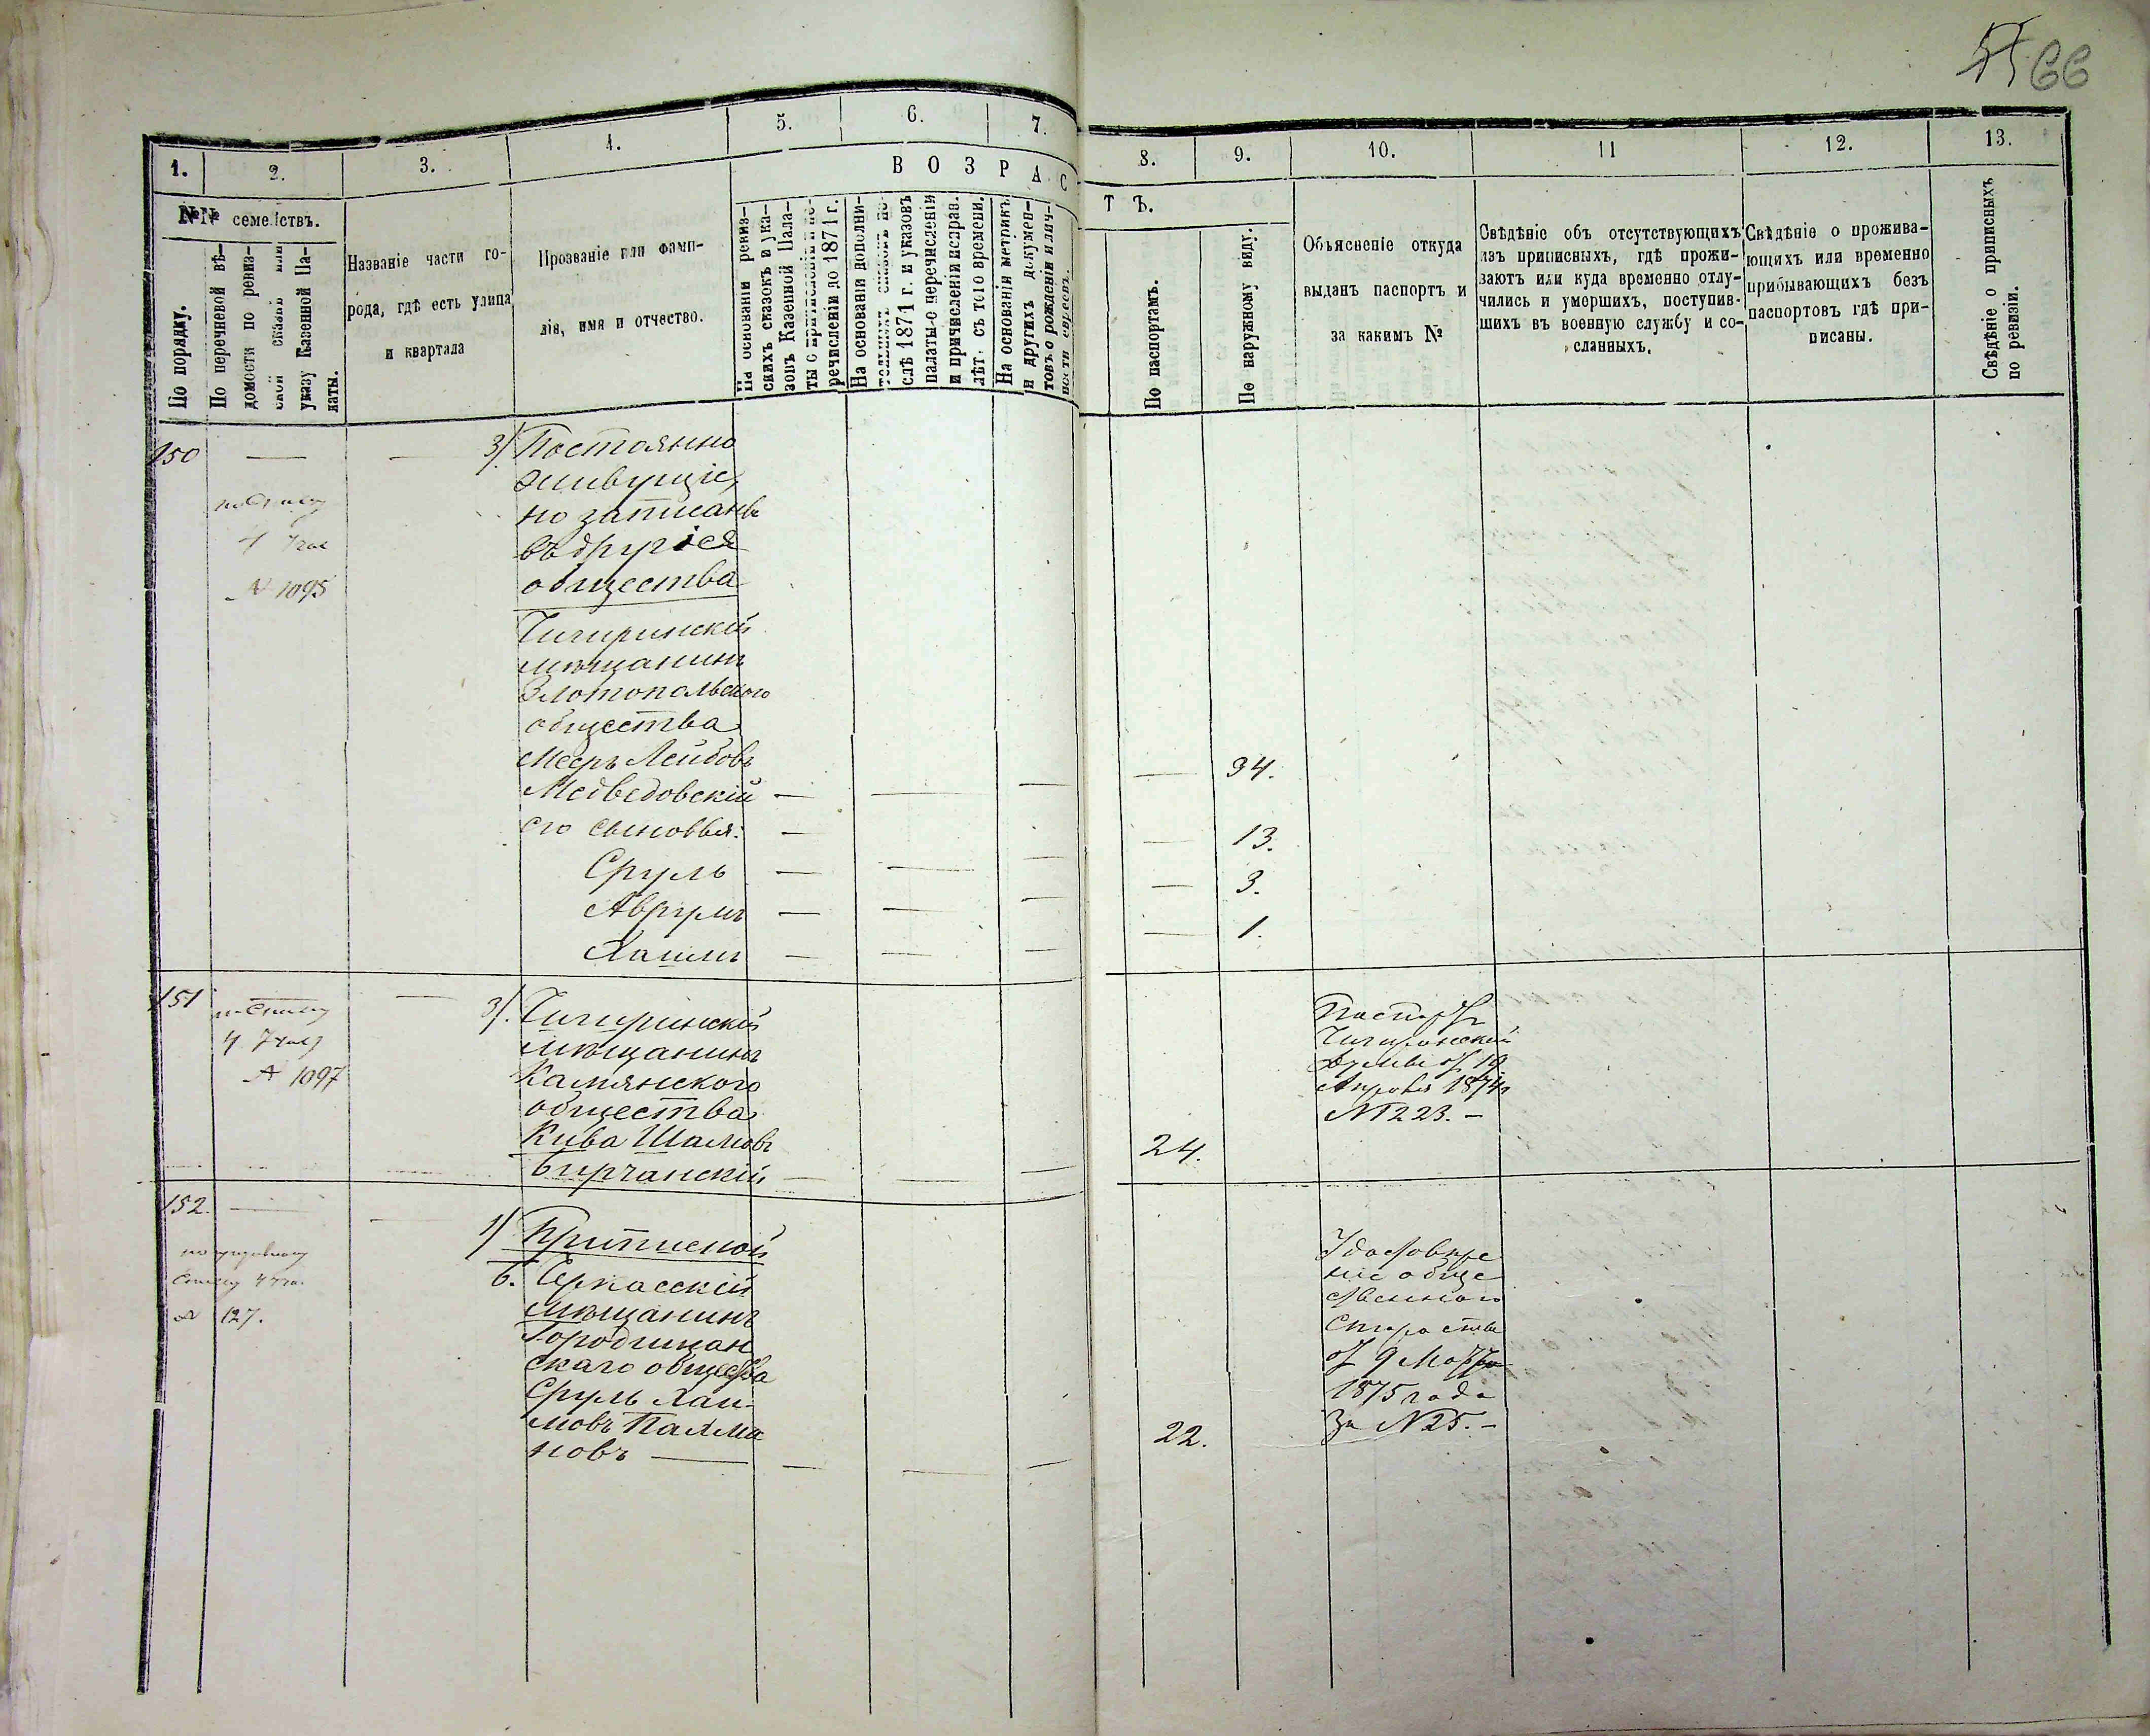 66
1.
2.
3.
4.
5.
6.
7.
8.
9.
10.
11
12.
13.
ВОЗРАС
ТЪ.
№№ семействъ.
По порядку.
По перечневой вѣ-
домости по ревиз-
ской сказкѣ или
указу Казенной Па-
латы.
Названіе части го-
рода, гдѣ есть улица
и квартала
Прозваніе или фами-
лія, имя и отчество.
На основаніи ревиз-
скихъ сказокъ и ука-
зовъ Казенной Пала-
ты о причисленіи и пе-
речисленіи до 1871 г.
На основаніи дополни-
тельныхъ сказокъ по-
слѣ 1871 г. и указовъ
палаты о перечисленіи
и причисленіи исправ.
лѣт. съ того времени.
На основаніи метрикъ
и другихъ докумен-
товъ о рожденіи и лич-
ности евреевъ.
По паспортамъ.
По наружному виду.
Объясненіе откуда
выданъ паспортъ и
за какимъ №
Свѣдѣніе объ отсутствующихъ
изъ приписныхъ, гдѣ прожи-
ваютъ или куда временно отлу-
чились и умершихъ, поступив-
шихъ въ военную службу и со-
сланныхъ.
Свѣдѣніе о прожива-
ющихъ или временно
прибывающихъ безъ
паспортовъ гдѣ при-
писаны.
Свѣдѣніе о приписныхъ
по ревизіи.
150
по списку
4
№ 1095
3/. Постоянно
живущіе,
но записаны
въ другія
общества
Чигиринскій
мѣщанинъ
Златопольского
общества
Мееръ Лейбовъ
Медведовскій — 34.
его сыновья:
Сруль — 13.
Аврумъ — 3.
Хаимъ — 1.
151
по списку
4
№ 1097
3/. Чигиринскій
мѣщанинъ
Камянского
общества
Кива Шамовъ
Бирчанскій — 24.
Паспортъ
Чигиринской
Думы от 19
Апреля 1874
№ 1223. –
152.
списку 4
№ 127.
1/ Приписной
б. Черкасскій
мѣщанинъ
Городищан
скаго общества
Сруль Хаи-
мовъ Палма
новъ — 22.
Удостовѣре
ніе обще
ственнаго
Старосты
от 9 Марта
1875 года
За № 25. –